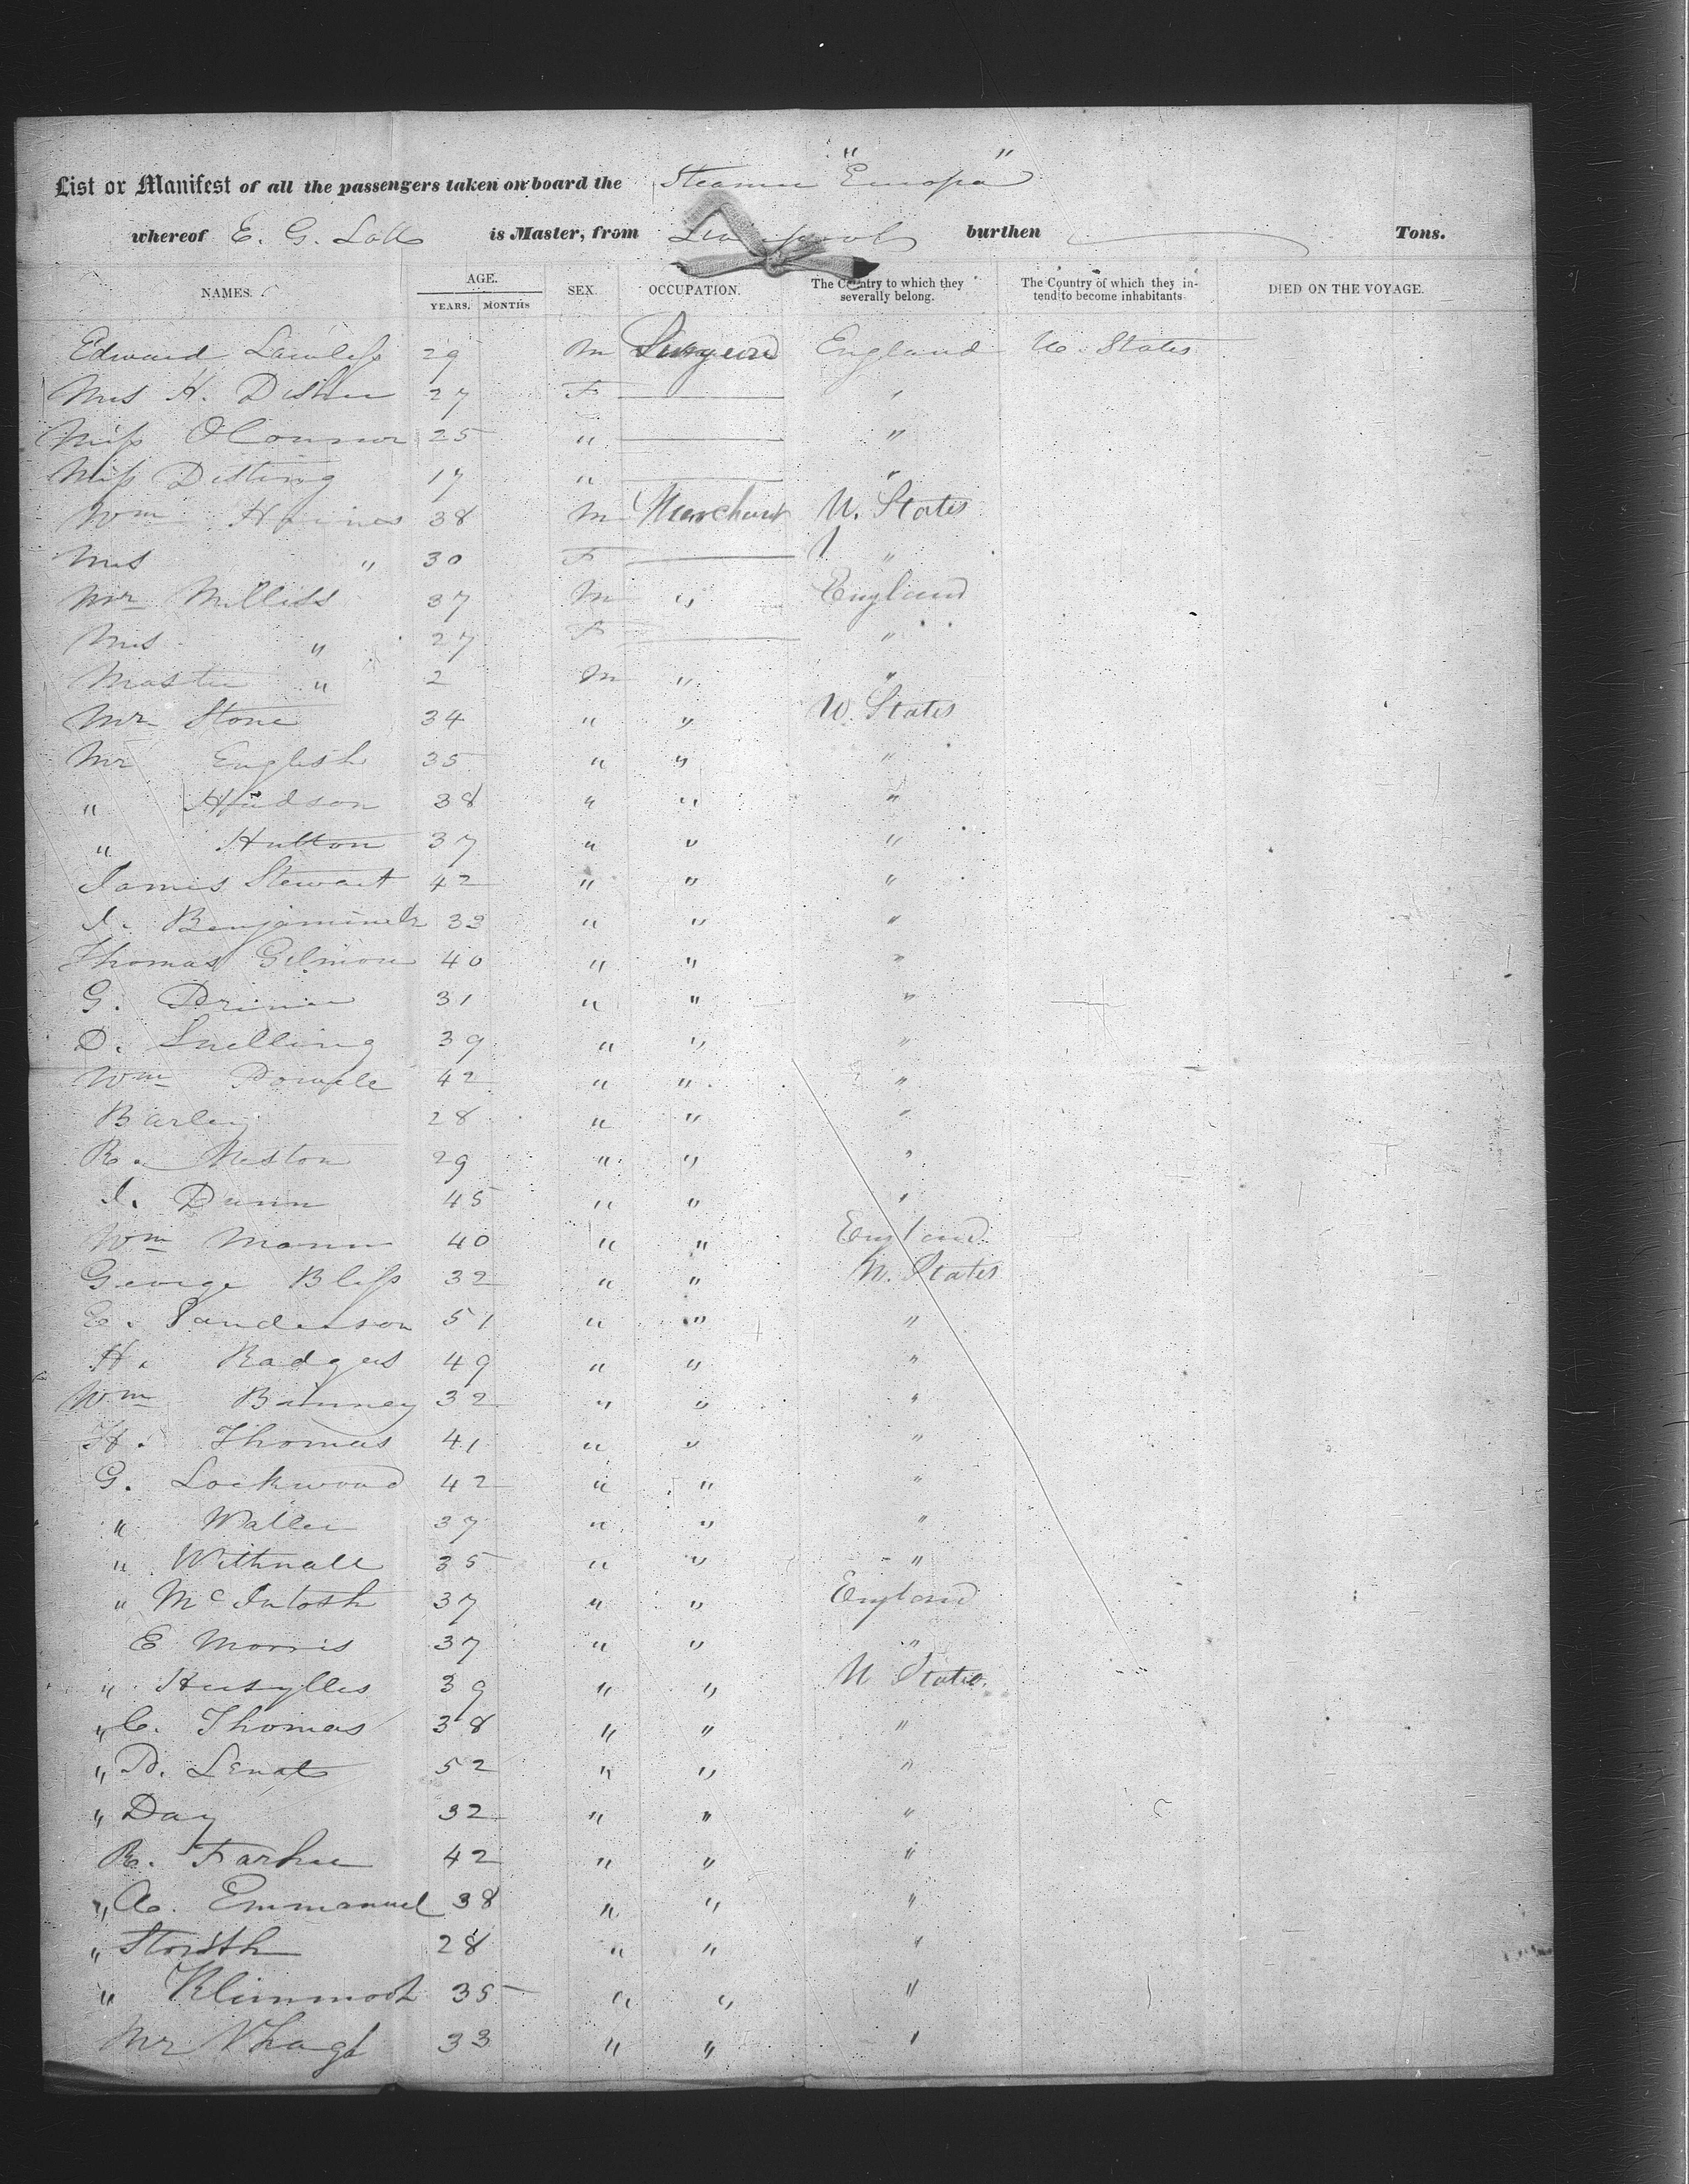 " "
List or Manifest of all the passengers taken on board the Steamer Europa
whereof E. G. Lott is Master, from Liverpool burthen Tons.
NAMES. AGE. YEARS. MONTHS SEX. OCCUPATION. The Country to which they severally belong. The Country of which they intend to become inhabitants. DIED ON THE VOYAGE.
Edward Lawless 29 M Surgeon England U. States
Mrs H. 27 F "
Miss OConnor 25 " "
Miss 17 " "
Wm Haines 38 M Merchant U. States
Mrs " 30 F "
Mr Milliss 37 M " England
Mrs " 27 F "
Master " 2 M " "
Mr Stone 34 " " U. States
Mr English 35 " " "
" Hudson 38 " " "
" Hutton 37 " " "
James Stewart 42 " " "
33 " " "
Thomas Gilmour 40 " " "
G. 31 " " "
D. Snelling 39 " " "
Wm 42 " " "
Barley 28 " " "
R. Weston 29 " " "
J. Dunn 45 " " "
Wm Mann 40 " " England
George Bliss 32 " " U. States
E. Sanderson 51 " " "
H. Badgers 49 " " "
Wm 32 " " "
H. Thomas 41 " " "
G. Lockwood 42 " " "
" Waller 37 " " "
" Withnall 35 " " "
" McIntosh 37 " " England
E Morris 37 " " "
" 39 " " U States.
" C. Thomas 38 " " "
" 52 " " "
" Day 32 " " "
R. 42 " " "
" A. Emmanuel 38 " " "
" 28 " " "
" 35 " " "
Mr 33 " " "